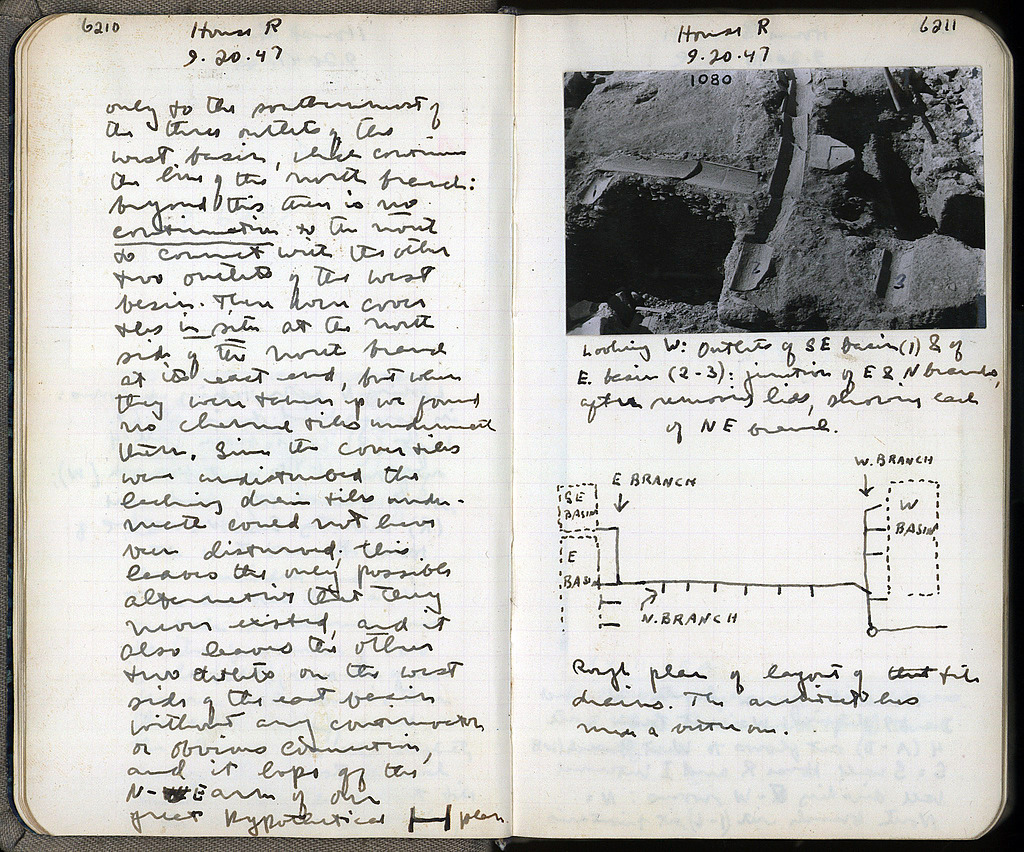 6210
House R
9.20.47
only to the southernmost of
the three outlets of the
west basin, which continues
the line of the north branch:
beyond this there is no
continuation to the north
to connect with the other
two outlets of the west
basin. There were cover
tiles in situ at the north
side of the north branch
at its east end, but when
they were taken up we found
no channel tiles underneath
them. Since the cover tiles
were undisturbed the
leading drain tiles under-
neath could not have
been disturbed; this
leaves the only possible
alternative that they
never existed, and it
also leaves the other
two outlets on the west
side of the east basin
without any connection
or obvious connection,
and it lops off the
N-E arm of our
great hypothetical plan.
6211
House R
9.20.47
1080
1
2
3
Looking W: Outlets of SE basin (1) & of
E. basin (2-3): junction of E & N branches,
after removing lids, showing each
of NE branch.
W. BRANCH
E BRANCH
SE
BASIN
W
BASIN
E
BASIN
N. BRANCH
Rough plan of layout of that tile
drains. The architect has